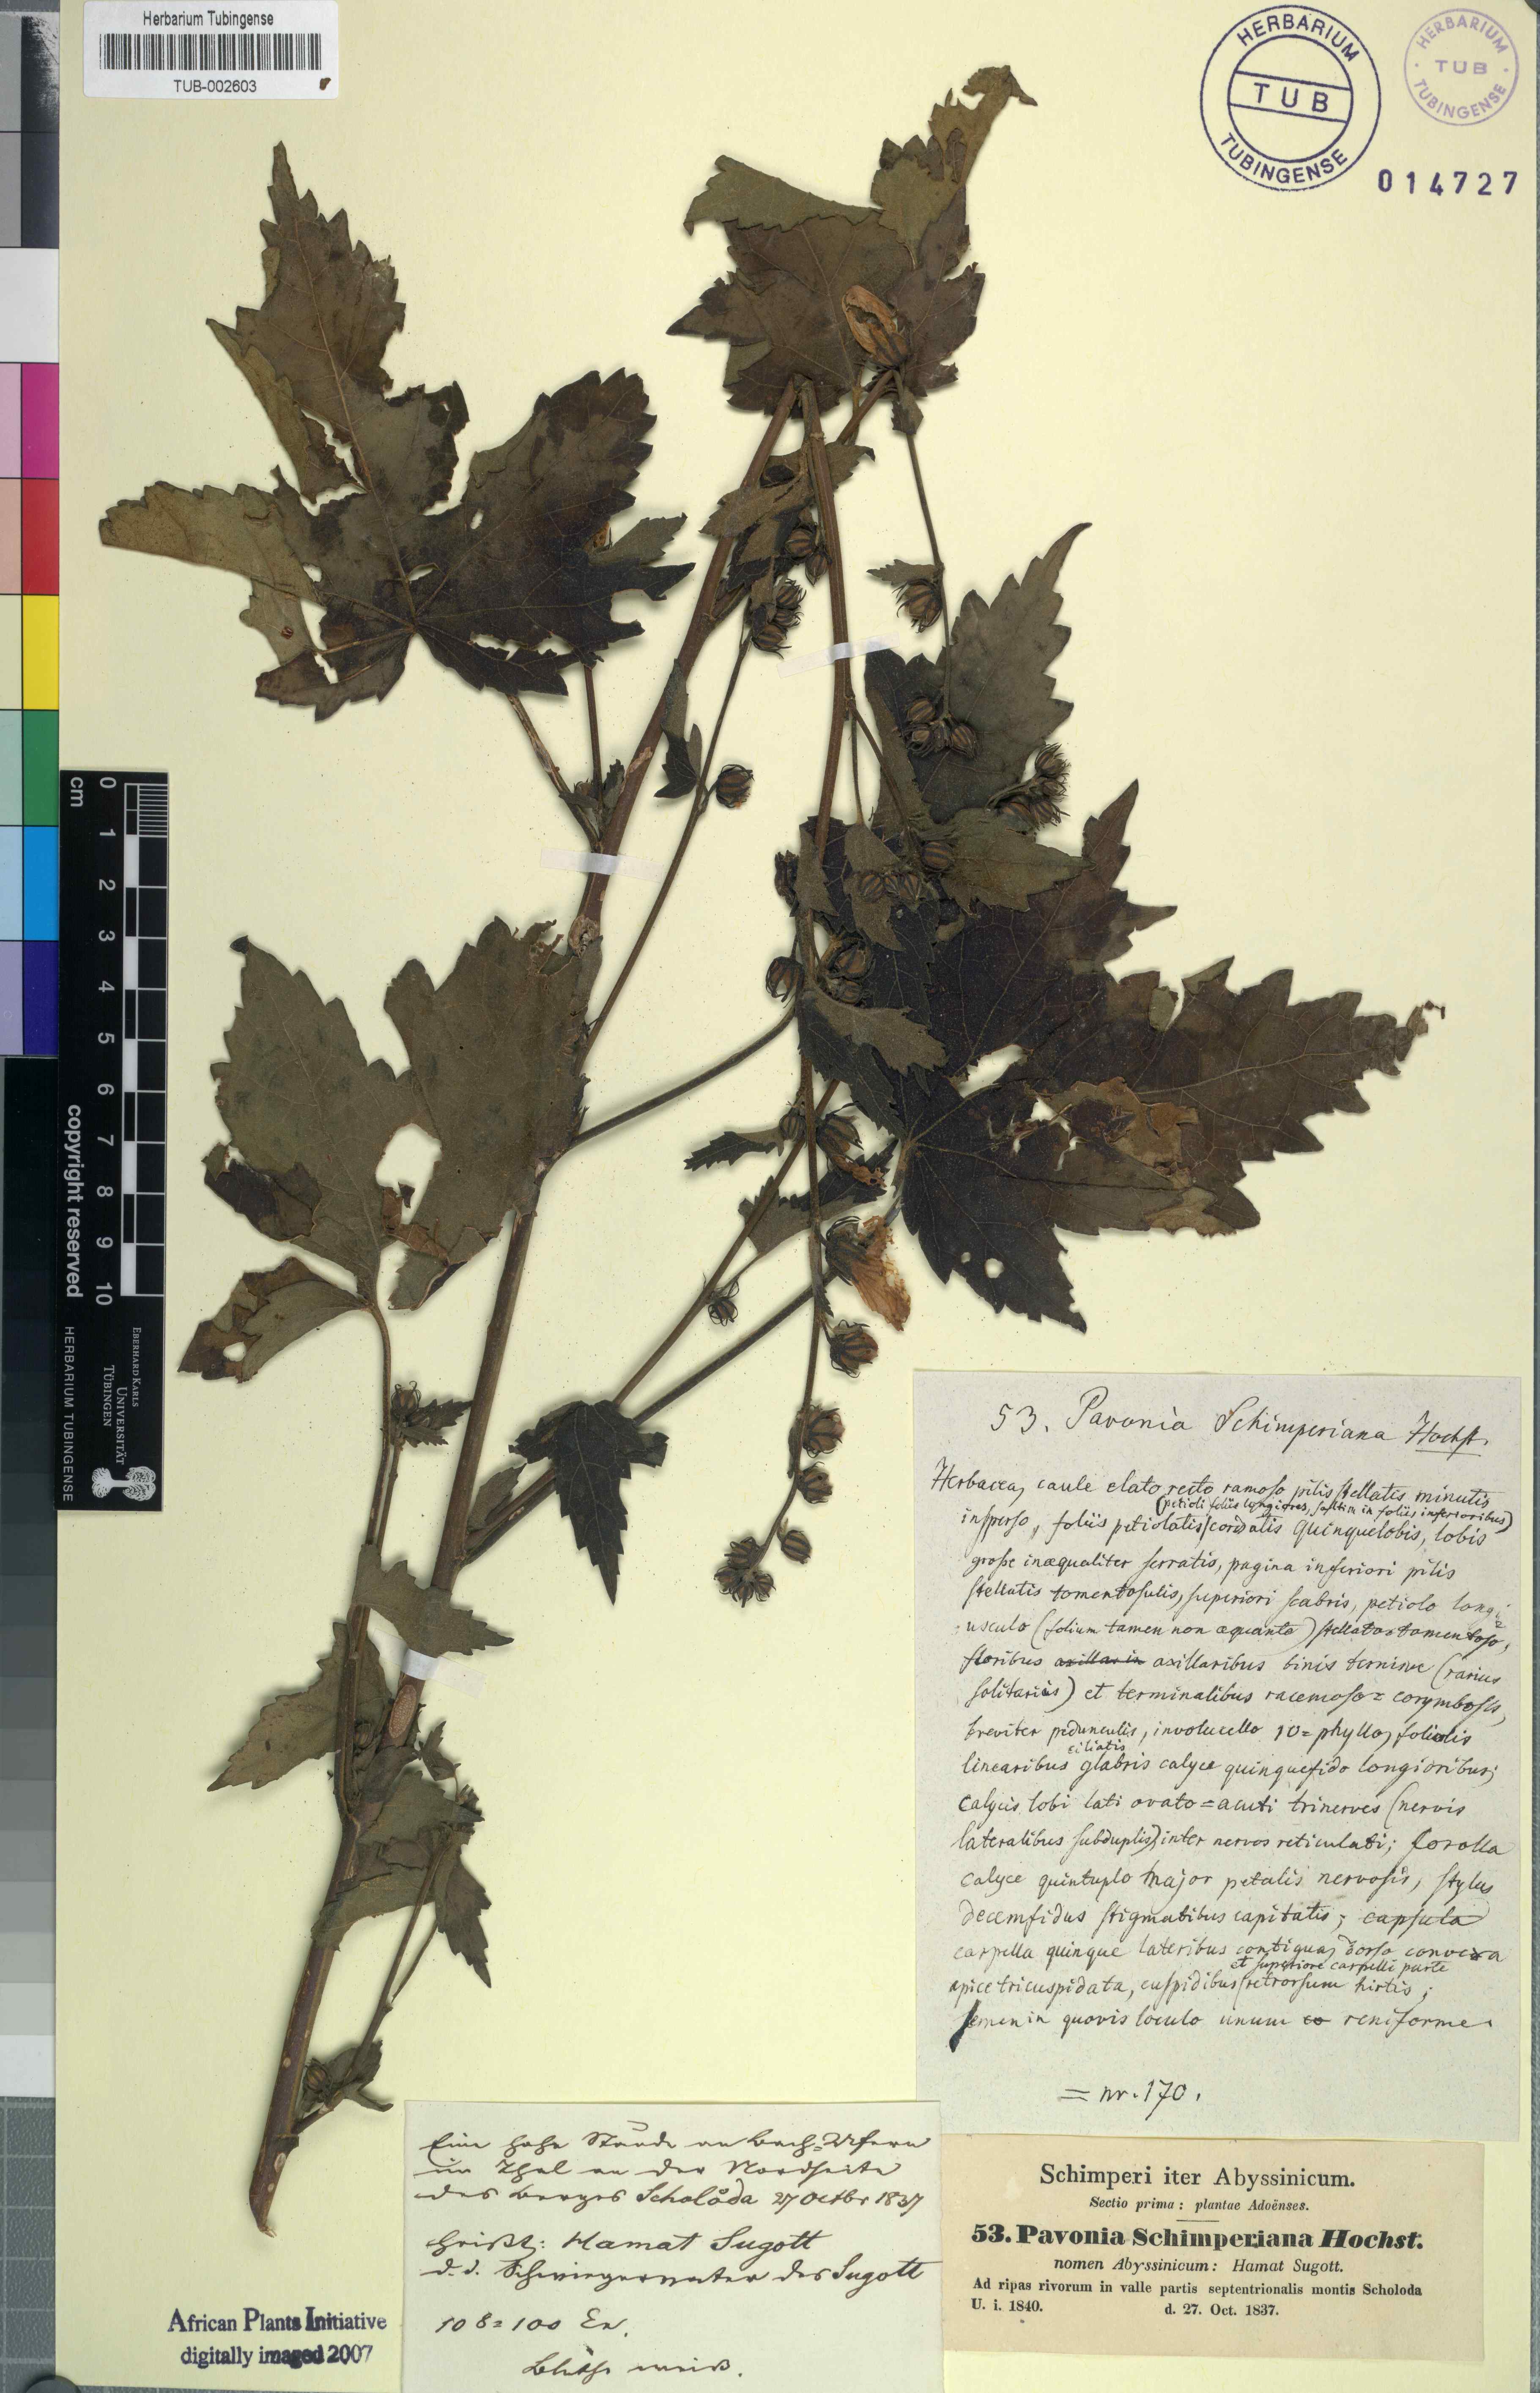 Herbarium Tubingense
TUB-002603
HERBARIUM TUBINGENSE
TUB
HERBARIUM TUBINGENSE
TUB
014727
cm
0 1 2 3 4 5 6 7 8 9 10
copyright reserved
HERBARIUM TUBINGENSE
EBERHARD KARLS
UNIVERSITÄT
TÜBINGEN
53. Pavonia Schimperiana Hochst.
Herbacea, caule elato recto ramoso pilis stellatis minutis
(petioli foliis longiores, saltim in foliis inferioribus)
insperso, foliis petiolatis cordatis quinquelobis, lobis
grosse inæqualiter serratis, pagina inferiori pilis
stellatis tomentosulis, superiori scabris, petiolo longi
usculo (folium tamen non æquante) stellato-tomentoso,
floribus axillar in axillaribus binis ternisve (rarius
solitariis) et terminalibus racemoso=corymbosis,
breviter pedunculis, involucello 10=phyllo, foliolis
ciliatis
linearibus glabris calyce quinquefido longioribus;
calycis lobi lati ovato=acuti trinerves (nervis
lateralibus subduplis) inter nervos reticulati; corolla
calyce quintuplo major petalis nervosis, stylus
decemfidus stigmatibus capitatis; capsula
carpella quinque lateribus contigua, dorso convexa
et superiore carpelli parte
apice tricuspidata, cuspidibus retrorsum hirtis;
semen in quovis loculo unum reniforme.
= nr. 170.
Eine hohe Staude an Bach=Ufern
im Thal an der Nordseite
des Berges Scholåda 27 Octbr 1837
heißt: Hamat Sugott
d. i. Schwiegermutter des Sugott
108=100 Ex.
Blüthe weiß.
Schimperi iter Abyssinicum.
Sectio prima: plantae Adoënses.
53. Pavonia Schimperiana Hochst.
nomen Abyssinicum: Hamat Sugott.
Ad ripas rivorum in valle partis septentrionalis montis Scholoda
U. i. 1840. d. 27. Oct. 1837.
African Plants Initiative
digitally imaged 2007